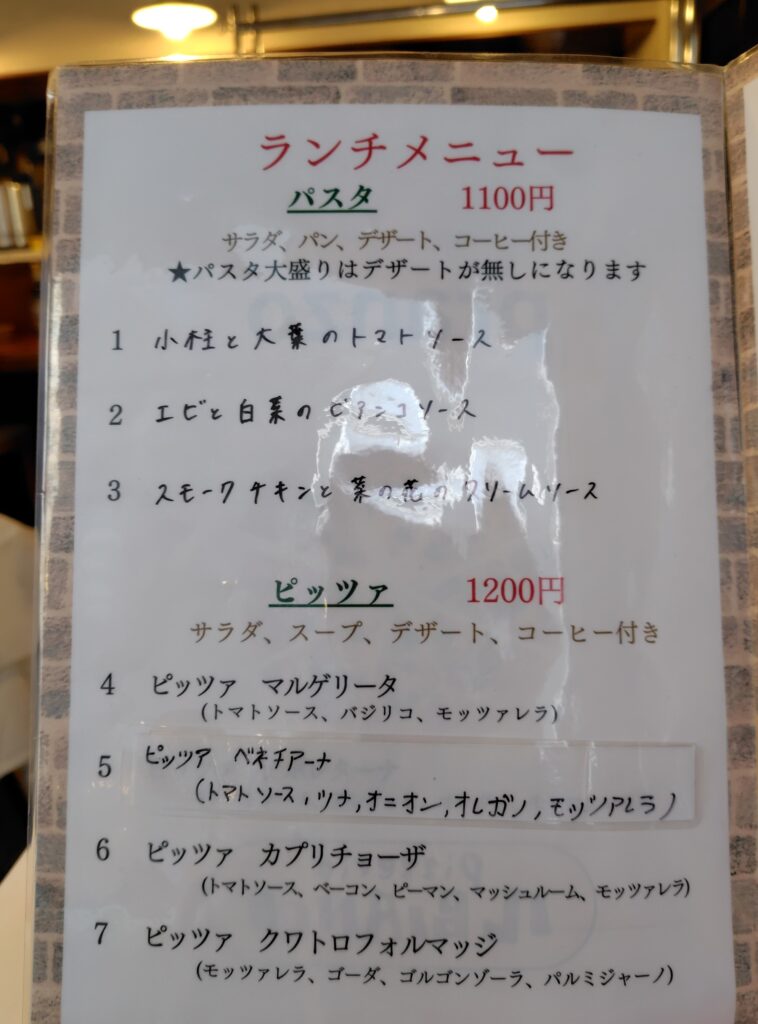 ランチメニュー
パスタ 1100円
サラダ、パン、デザート、コーヒー付き
★パスタ大盛りはデザートが無しになります
1 小柱と大葉のトマトソース
2 エビと白菜のビアンコソース
3 スモークチキンと菜の花のクリームソース
ピッツァ 1200円
サラダ、スープ、デザート、コーヒー付き
4 ピッツァ マルゲリータ
(トマトソース、バジリコ、モッツァレラ)
5 ピッツァ ベネチアーナ
(トマトソース,ツナ,オニオン,オレガノ,モッツアレラ)
6 ピッツァ カプリチョーザ
(トマトソース、ベーコン、ピーマン、マッシュルーム、モッツァレラ)
7 ピッツァ クワトロフォルマッジ
(モッツァレラ、ゴーダ、ゴルゴンゾーラ、パルミジャーノ)